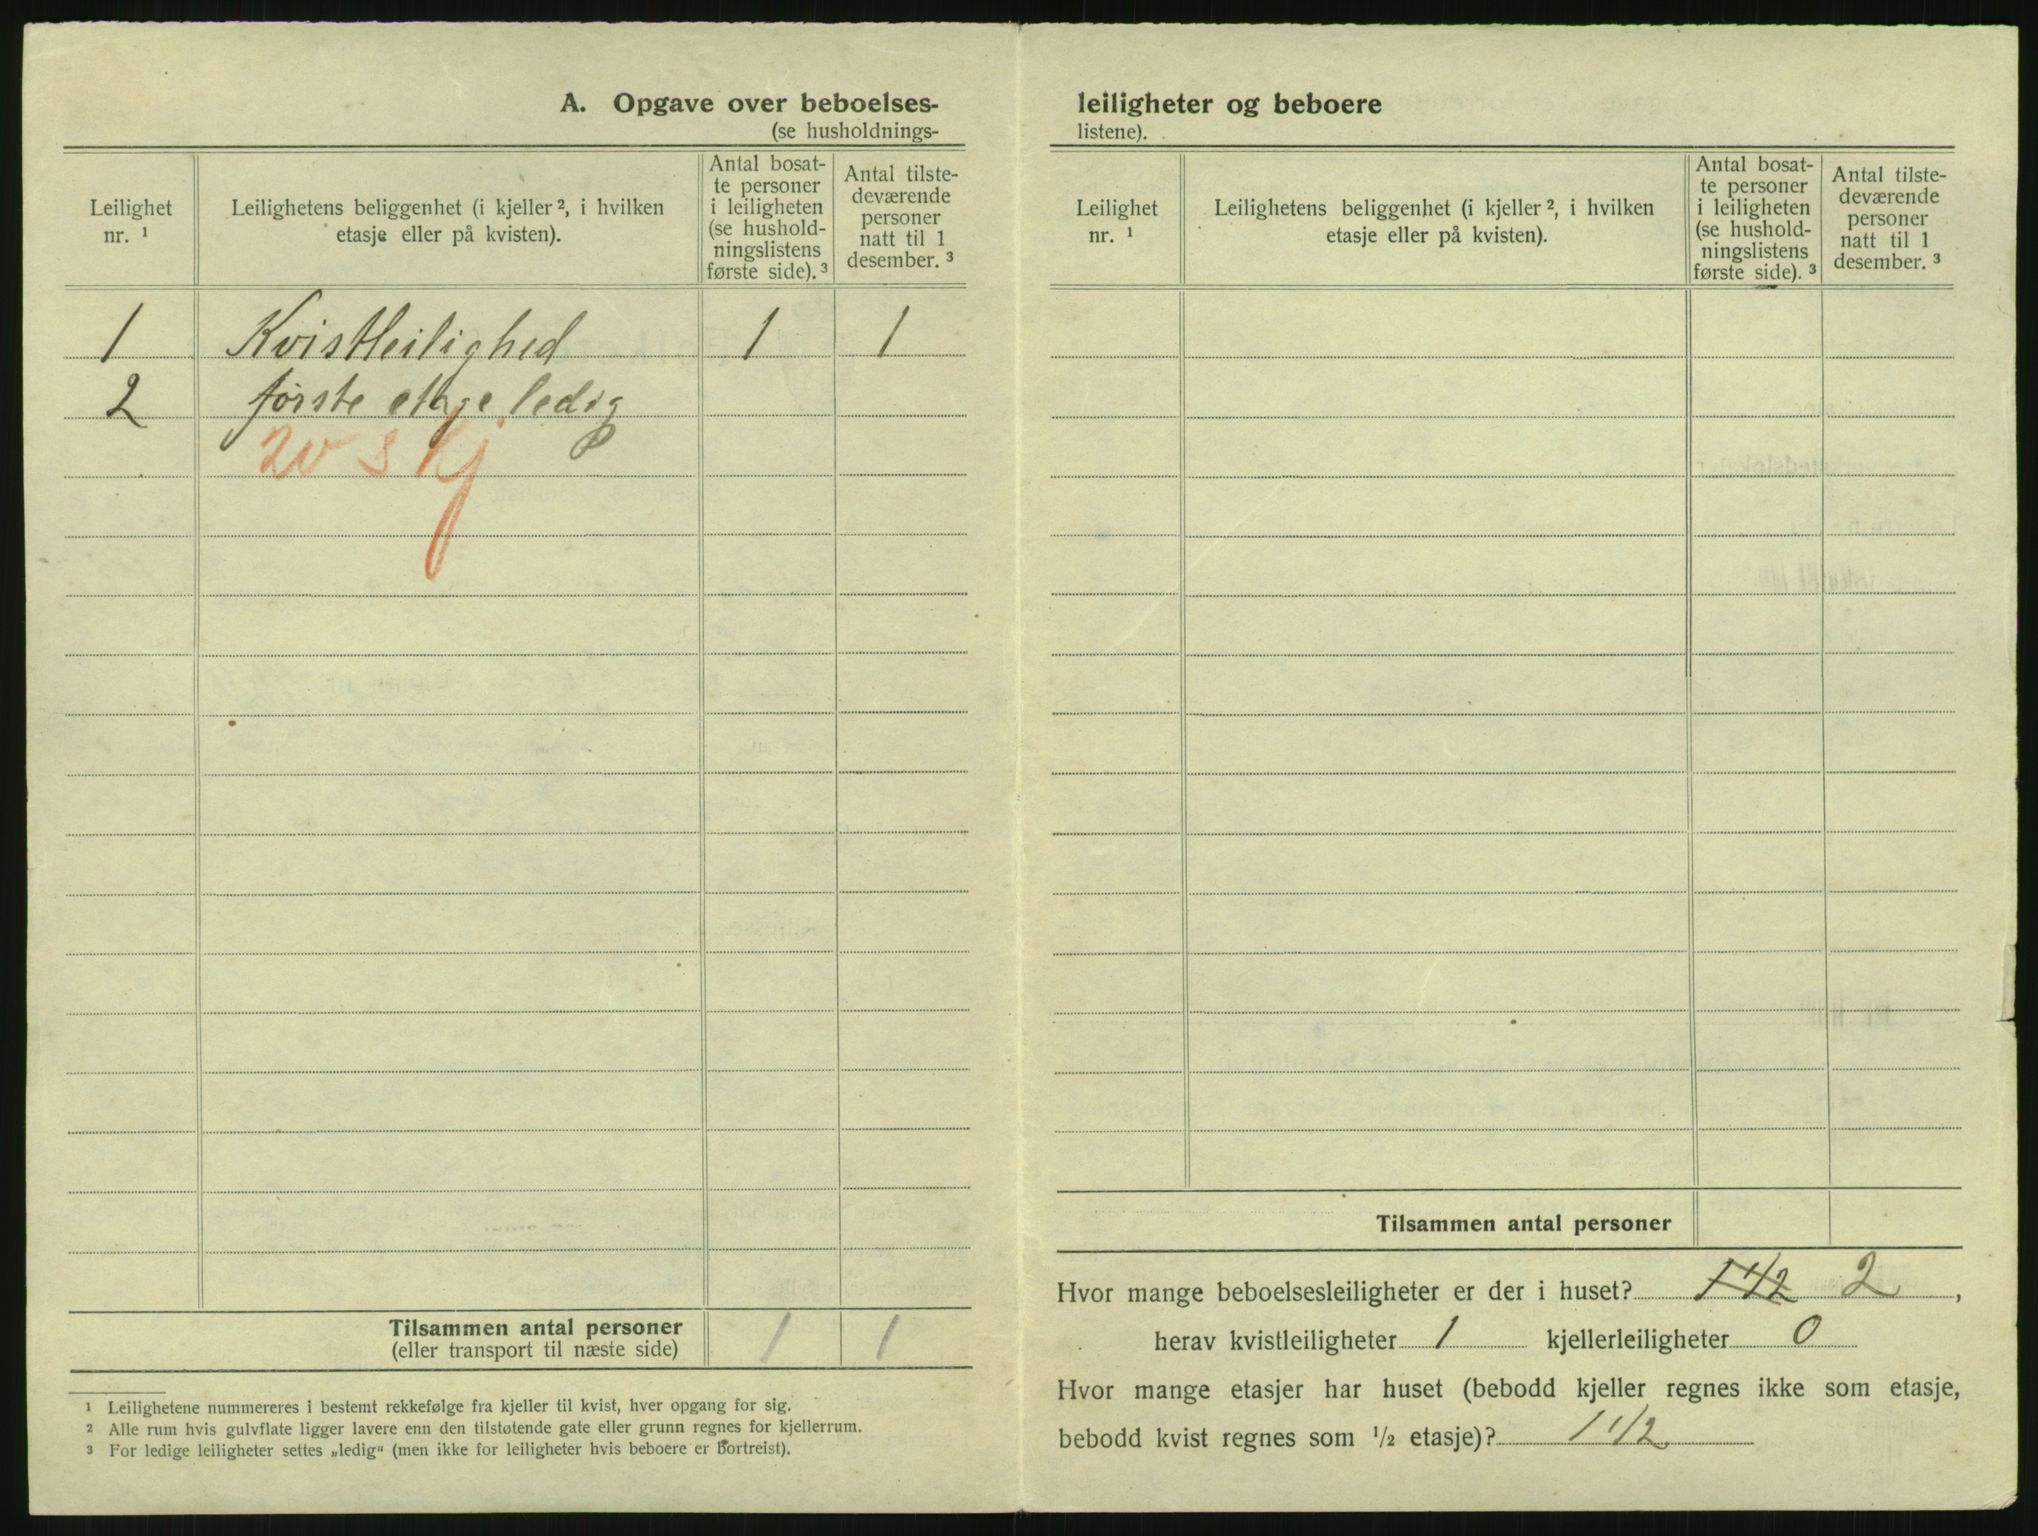 A. Opgave over beboelses-
(se husholdnings-
Leilighet nr. ¹
Leilighetens beliggenhet (i kjeller ², i hvilken etasje eller på kvisten).
Antal bosat-
te personer
i leiligheten
(se hushold-
ningslistens
første side). ³
Antal tilste-
deværende
personer
natt til 1
desember. ³
1 Kvistleilighed 1 1
2 første etage ledig
2v s kj
Tilsammen antal personer 1 1
(eller transport til næste side)
¹ Leilighetene nummereres i bestemt rekkefølge fra kjeller til kvist, hver opgang for sig.
² Alle rum hvis gulvflate ligger lavere enn den tilstøtende gate eller grunn regnes for kjellerrum.
³ For ledige leiligheter settes „ledig“ (men ikke for leiligheter hvis beboere er bortreist).
leiligheter og beboere
listene).
Leilighet nr. ¹
Leilighetens beliggenhet (i kjeller ², i hvilken etasje eller på kvisten).
Antal bosat-
te personer
i leiligheten
(se hushold-
ningslistens
første side). ³
Antal tilste-
deværende
personer
natt til 1
desember. ³
Tilsammen antal personer
Hvor mange beboelsesleiligheter er der i huset? 1 1/2 2,
herav kvistleiligheter 1 kjellerleiligheter 0
Hvor mange etasjer har huset (bebodd kjeller regnes ikke som etasje,
bebodd kvist regnes som ½ etasje)? 1 1/2